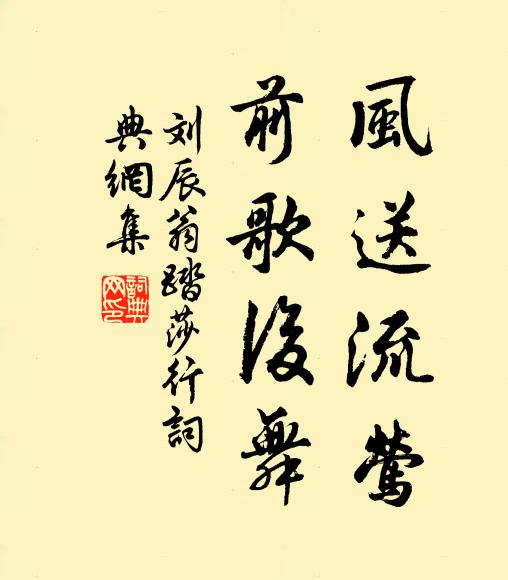 風送流鶯
前歌後舞
刘辰翁踏莎行詞
典網集
詞典
网印